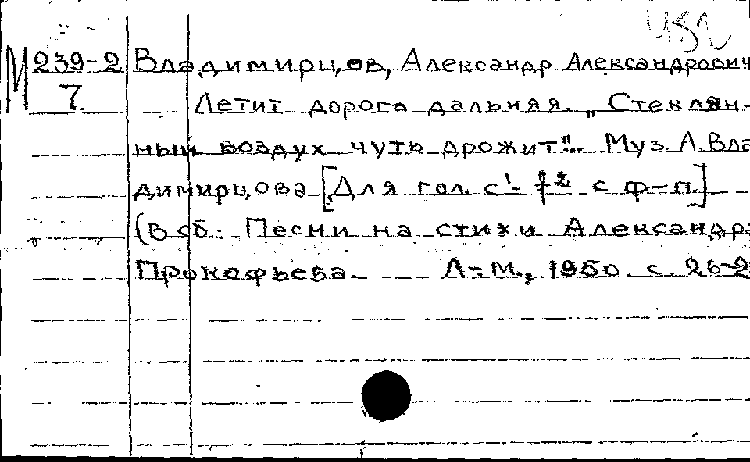 М 239-2 Владимирцов, Александр Александрович
7 Летит дорога дальняя. „Стеклян-
ный воздух чуть дрожит“. Муз. А. Вла
димирцова [Для гол. с¹- f² с ф-п.]
(В сб. Песни на стихи Александра
Прокофьева. Л-М., 1950. с. 26-2